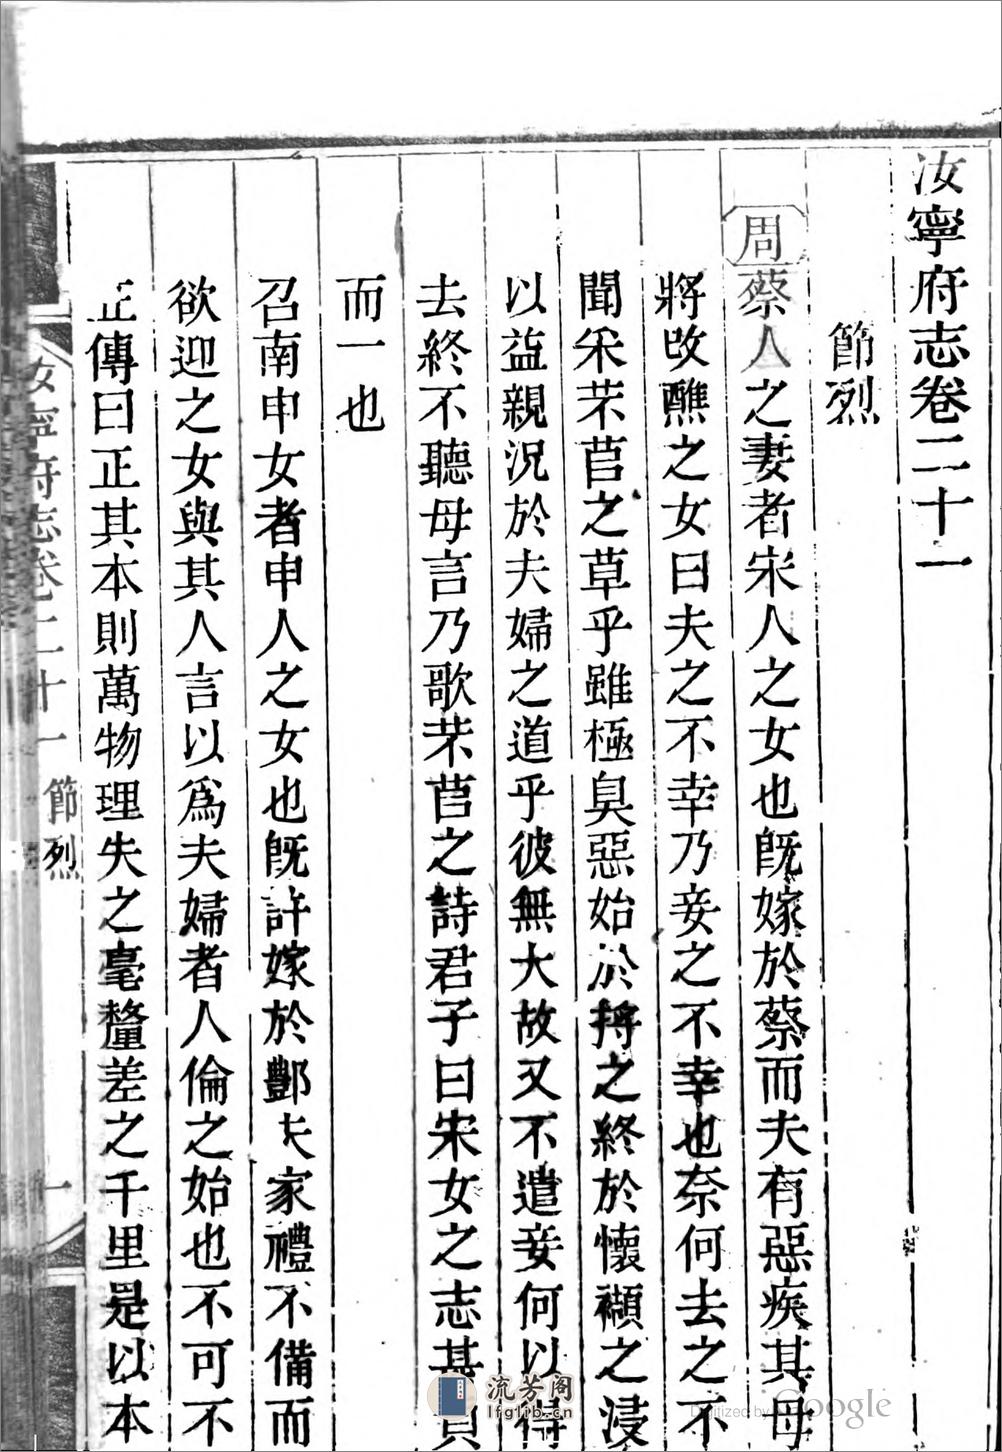 汝寧府志卷二十一
節烈
周蔡人之妻者宋人之女也旣嫁於蔡而夫有惡疾其母
將改醮之女曰夫之不幸乃妾之不幸也奈何去之不
聞采芣苢之草乎雖極臭惡始於捋之終於懷襭之浸
以益親況於夫婦之道乎彼無大故又不遣妾何以得
去終不聽母言乃歌芣苢之詩君子曰宋女之志甚貞
而一也
召南申女者申人之女也旣許嫁於酆夫家禮不備而
欲迎之女與其人言以爲夫婦者人倫之始也不可不
正傳曰正其本則萬物理失之毫釐差之千里是以本
汝寧府志卷二十一 節烈 一
流芳阁
lfglib.cn
Digitized by Google